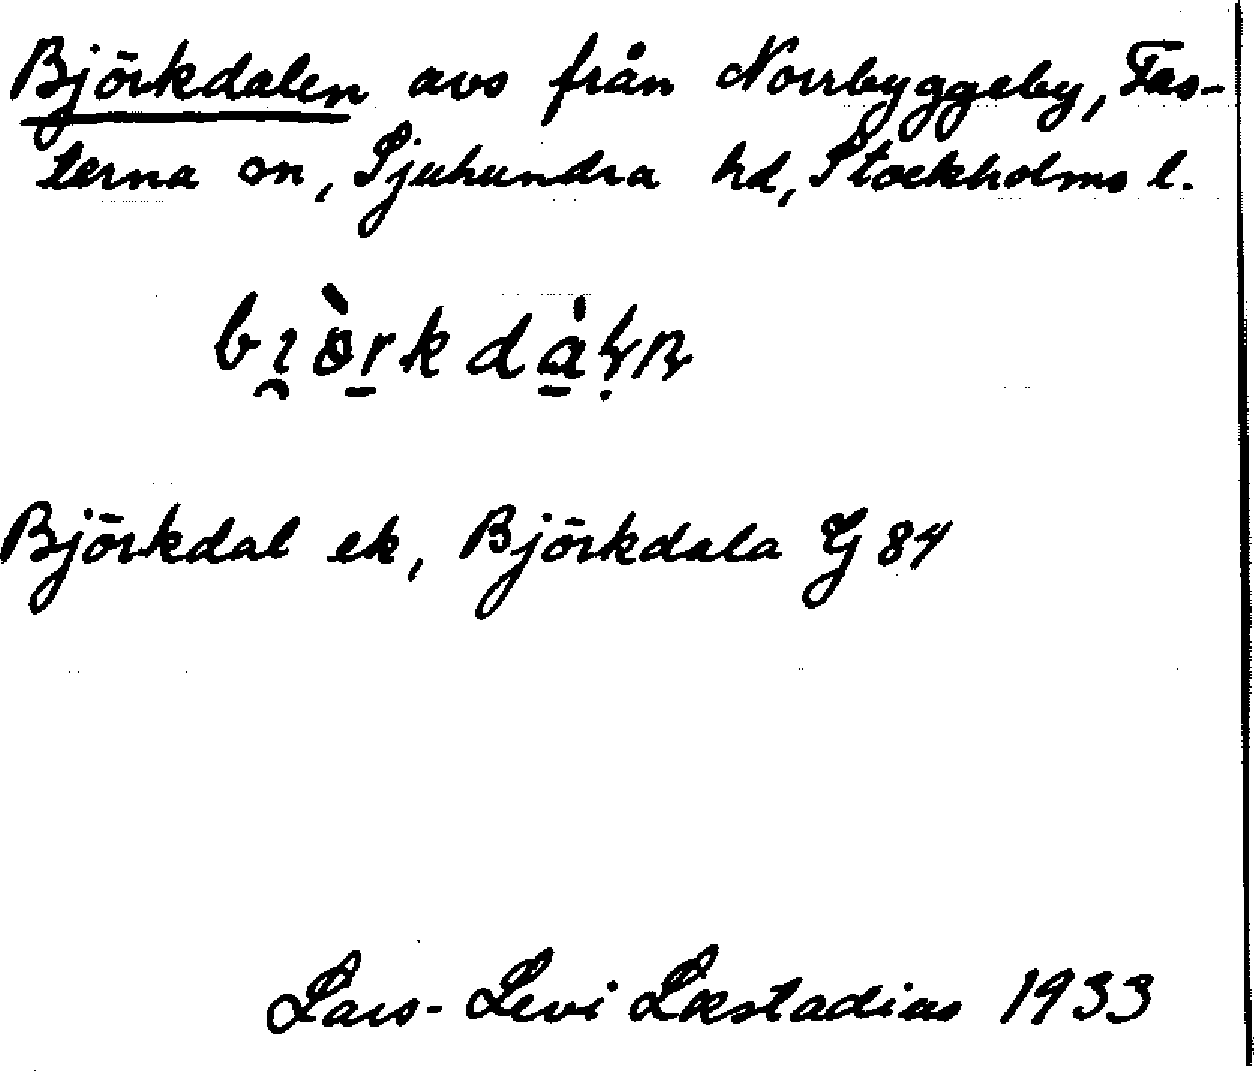 Björkdalen avs från Norrbyggeby, Fas-
terna sn, Sjuhundra hd, Stockholms l.
bi̯ò̈r̠kdà̠ḷn
Björkdal ek, Björkdala G 84
Lars-Levi Læstadius 1933